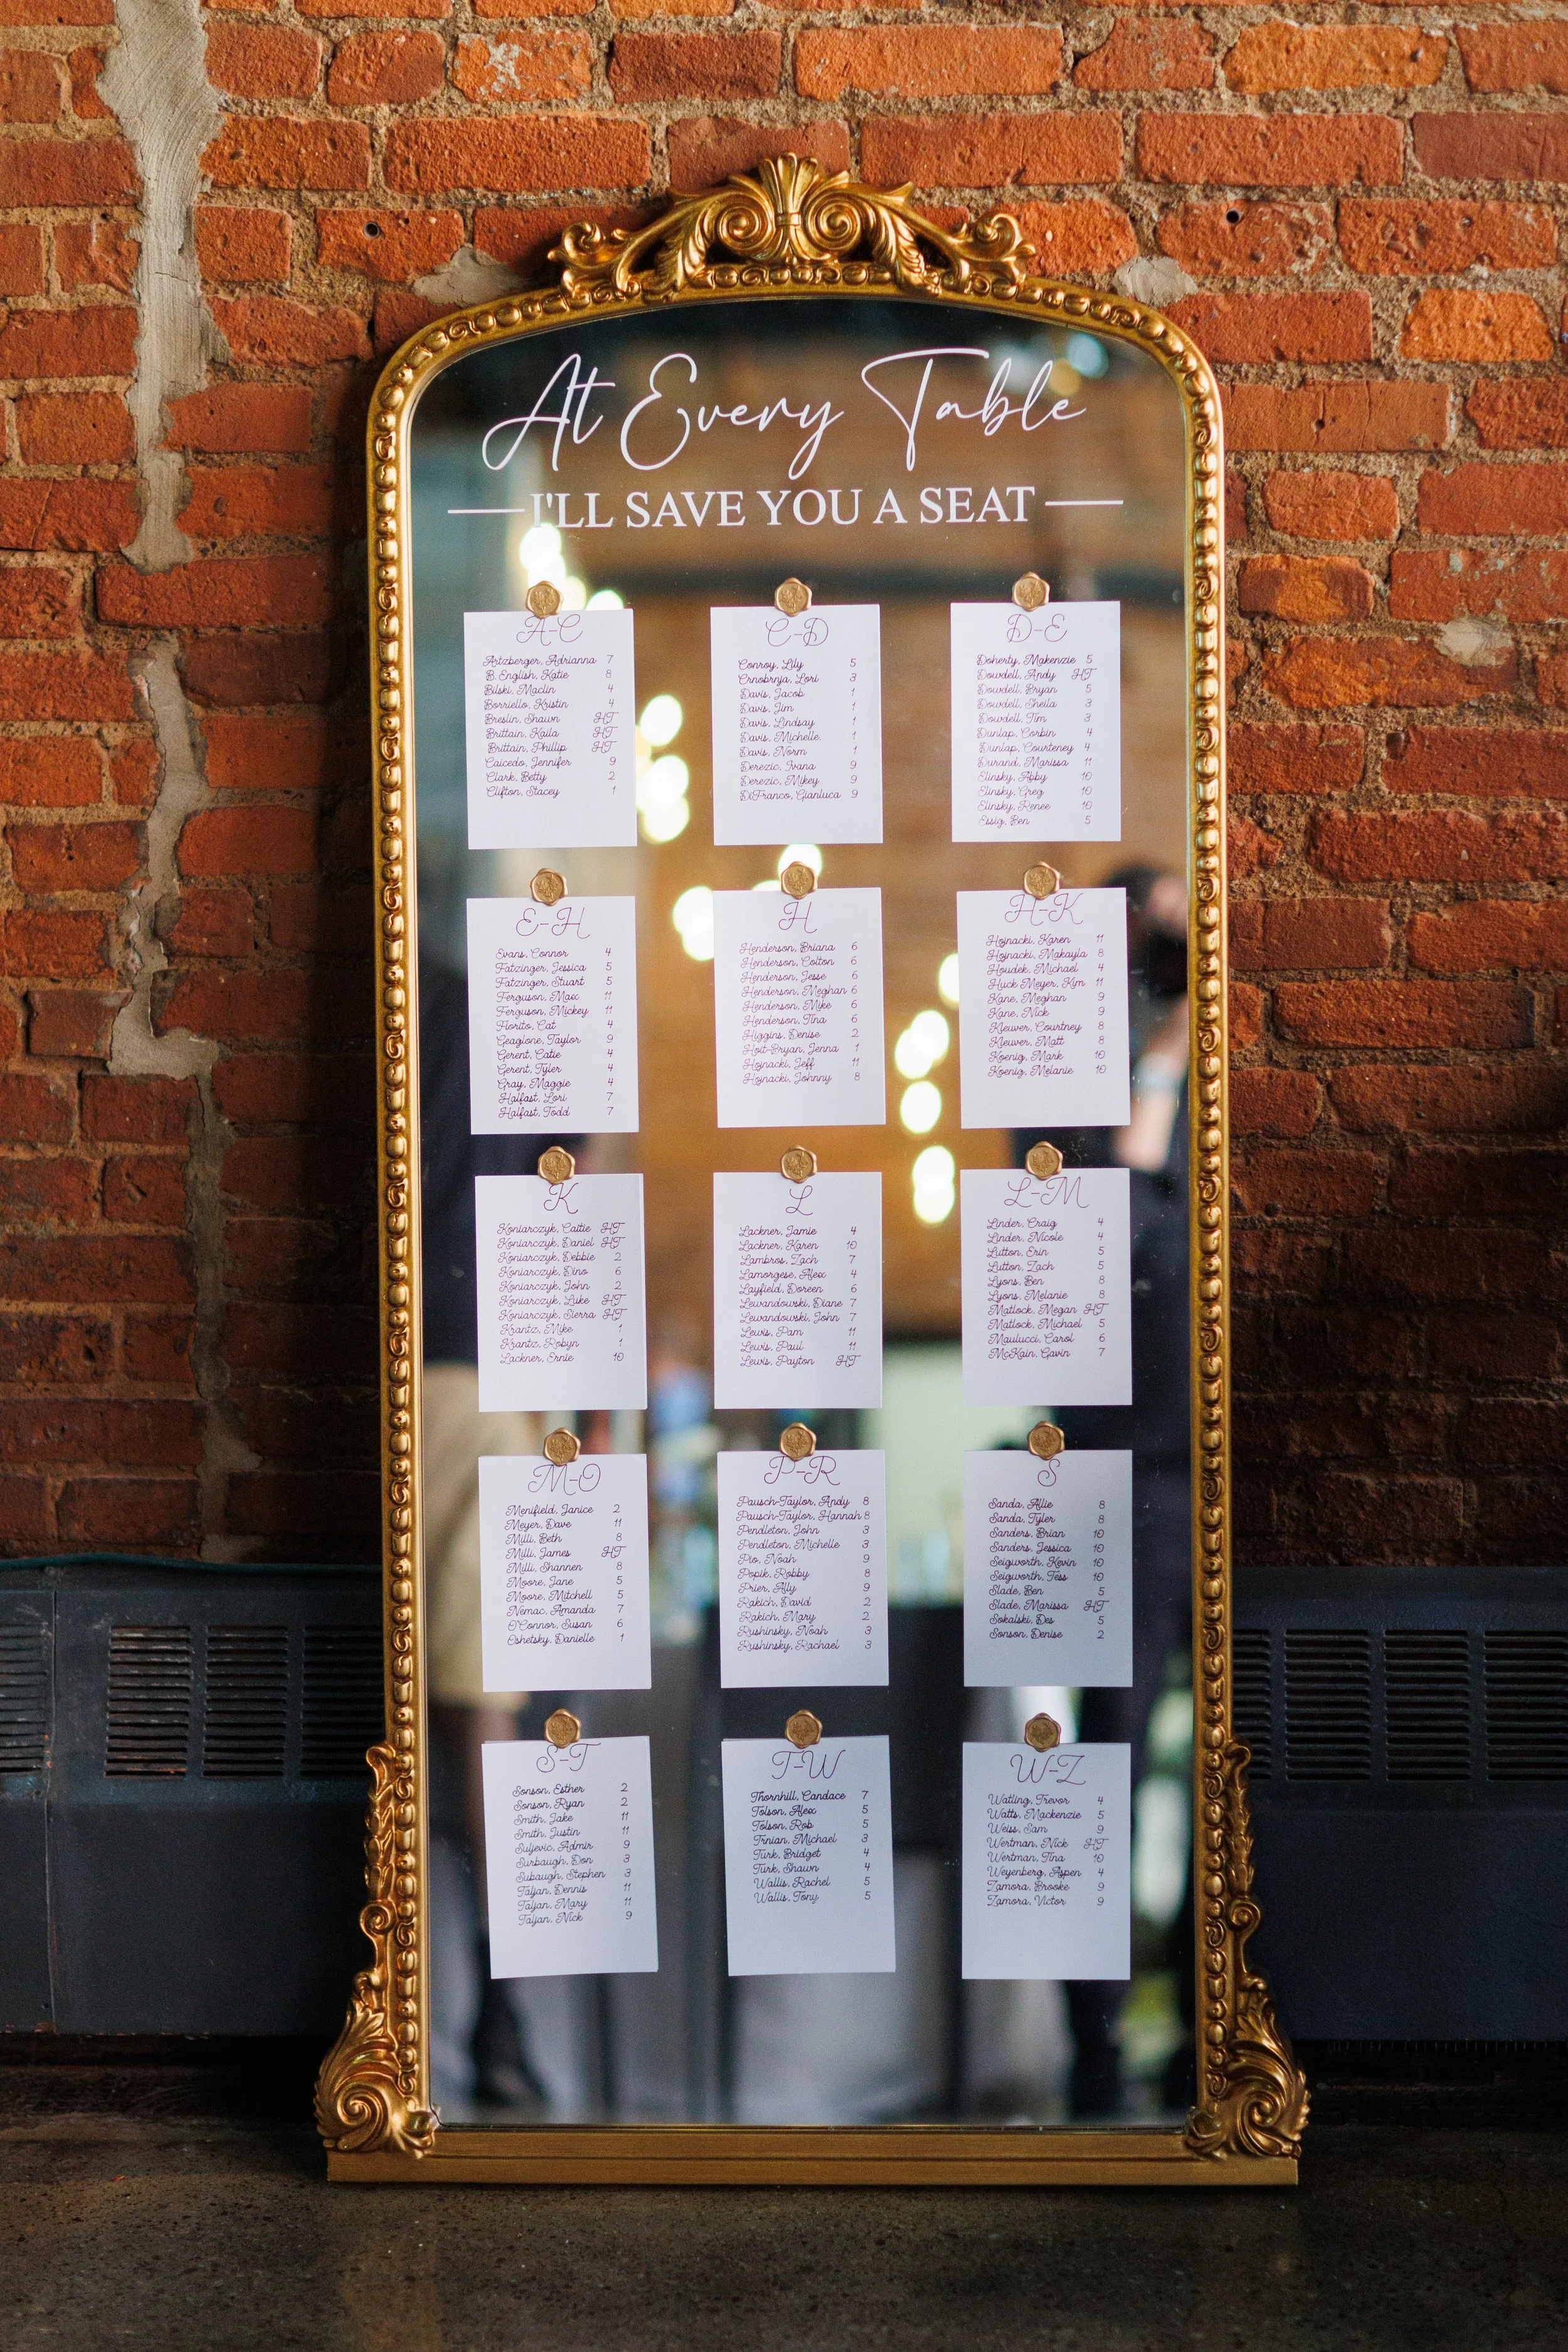 At Every Table
I'LL SAVE YOU A SEAT
A-C
Artzberger, Adrianna 7
B. English, Katie 8
Bilski, Maclin 4
Borriello, Kristin 4
Breslin, Shawn HT
Brittain, Kaila HT
Brittain, Phillip HT
Caicedo, Jennifer 9
Clark, Betty 2
Clifton, Stacey 1
C-D
Conroy, Lily 5
Crnobrnja, Lori 3
Davis, Jacob 1
Davis, Jim 1
Davis, Lindsay 1
Davis, Michelle. 1
Davis, Norm 1
Derezic, Ivana 9
Derezic, Mikey 9
DiFranco, Gianluca 9
D-E
Doherty, Makenzie 5
Dowdell, Andy HT
Dowdell, Bryan 5
Dowdell, Sheila 3
Dowdell, Tim 3
Dunlap, Corbin 4
Dunlap, Courteney 4
Durand, Marissa 11
Elinsky, Abby 10
Elinsky, Greg 10
Elinsky, Renee 10
Essig, Ben 5
E-H
Evans, Connor 4
Fatzinger, Jessica 5
Fatzinger, Stuart 5
Ferguson, Max 11
Ferguson, Mickey 11
Fiorito, Cat 4
Geaglone, Taylor 9
Gerent, Catie 4
Gerent, Tyler 4
Gray, Maggie 4
Halfast, Lori 7
Halfast, Todd 7
H
Henderson, Briana 6
Henderson, Colton 6
Henderson, Jesse 6
Henderson, Meghan 6
Henderson, Mike 6
Henderson, Tina 6
Higgins, Denise 2
Hoit-Bryan, Jenna 1
Hojnacki, Jeff 11
Hojnacki, Johnny 8
H-K
Hojnacki, Karen 11
Hojnacki, Makayla 8
Houdek, Michael 4
Huck Meyer, Kim 11
Kane, Meghan 9
Kane, Nick 9
Kleuver, Courtney 8
Kleuver, Matt 8
Koenig, Mark 10
Koenig, Melanie 10
K
Koniarczyk, Caitie HT
Koniarczyk, Daniel HT
Koniarczyk, Debbie 2
Koniarczyk, Dino 6
Koniarczyk, John 2
Koniarczyk, Luke HT
Koniarczyk, Sierra HT
Krantz, Mike 1
Krantz, Robyn 1
Lackner, Ernie 10
L
Lackner, Jamie 4
Lackner, Karen 10
Lambros, Zach 7
Lamorgese, Alex 4
Layfield, Doreen 6
Lewandowski, Diane 7
Lewandowski, John 7
Lewis, Pam 11
Lewis, Paul 11
Lewis, Payton HT
L-M
Linder, Craig 4
Linder, Nicole 4
Lutton, Erin 5
Lutton, Zach 5
Lyons, Ben 8
Lyons, Melanie 8
Matlock, Megan HT
Matlock, Michael 5
Maulucci, Carol 6
McKain, Gavin 7
M-O
Menifield, Janice 2
Meyer, Dave 11
Milli, Beth 8
Milli, James HT
Milli, Shannen 8
Moore, Jane 5
Moore, Mitchell 5
Nemac, Amanda 7
O'Connor, Susan 6
Oshetsky, Danielle 1
P-R
Pausch-Taylor, Andy 8
Pausch-Taylor, Hannah 8
Pendleton, John 3
Pendleton, Michelle 3
Pio, Noah 9
Popik, Robby 8
Prier, Ally 9
Rakich, David 2
Rakich, Mary 2
Rushinsky, Noah 3
Rushinsky, Rachael 3
S
Sanda, Allie 8
Sanda, Tyler 8
Sanders, Brian 10
Sanders, Jessica 10
Seigworth, Kevin 10
Seigworth, Tess 10
Slade, Ben 5
Slade, Marissa HT
Sokalski, Des 5
Sonson, Denise 2
S-T
Sonson, Esther 2
Sonson, Ryan 2
Smith, Jake 11
Smith, Justin 11
Suljevic, Admir 9
Surbaugh, Don 3
Subaugh, Stephen 3
Taljan, Dennis 11
Taljan, Mary 11
Taljan, Nick 9
T-W
Thornhill, Candace 7
Tolson, Alex 5
Tolson, Rob 5
Trnian, Michael 3
Turk, Bridget 4
Turk, Shawn 4
Wallis, Rachel 5
Wallis, Tony 5
W-Z
Watling, Trevor 4
Watts, Mackenzie 5
Weiss, Sam 9
Wertman, Nick HT
Wertman, Tina 10
Weyenberg, Aspen 4
Zamora, Brooke 9
Zamora, Victor 9